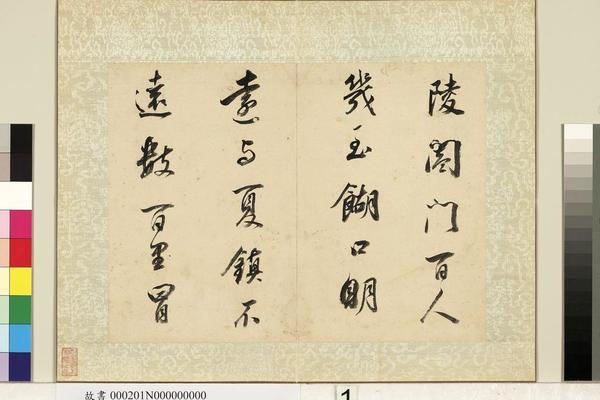 陵闔門百人
幾至餬口明
臺与夏鎮不
遠數百里冒
故書 000201N000000000
1